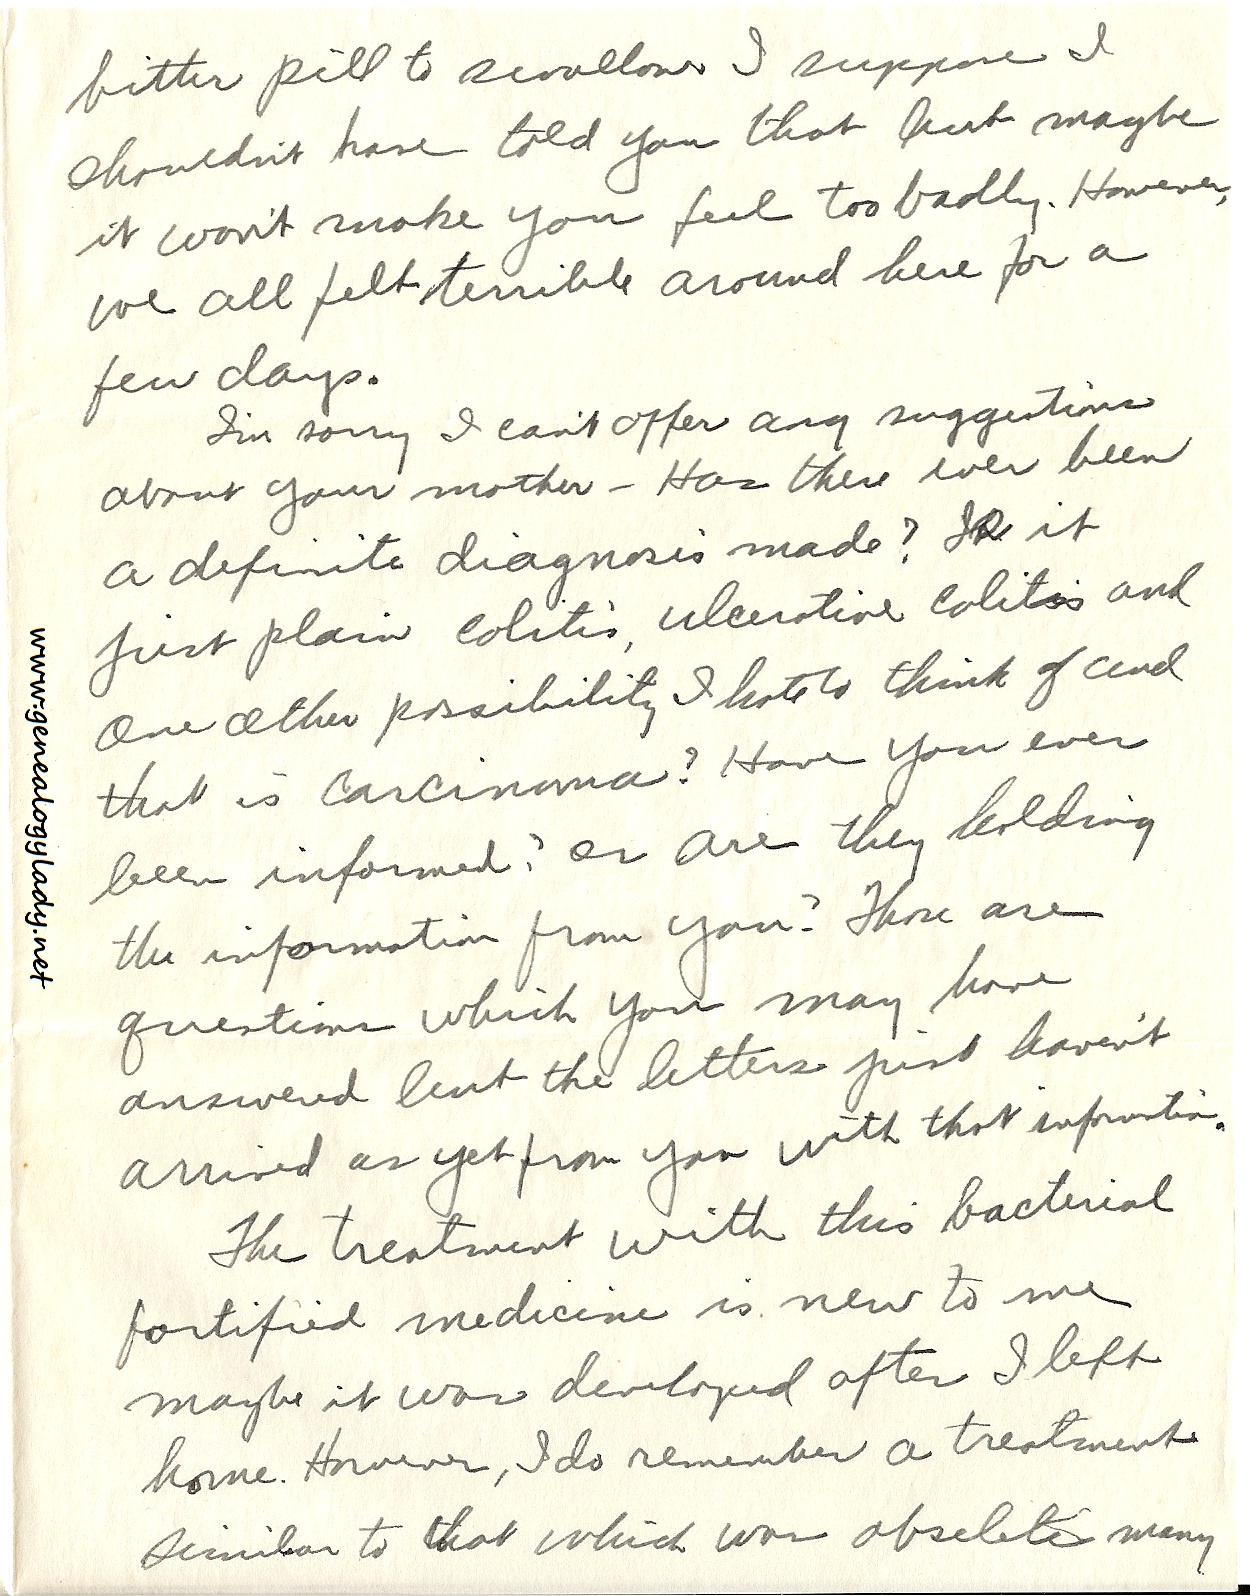 bitter pill to swallow I suppose I
shouldn't have told you that but maybe
it won't make you feel too badly. However,
we all felt terrible around here for a
few days.
I'm sorry I can't offer any suggestions
about your mother - Has there ever been
a definite diagnosis made? Is it
just plain colitis, ulcerative colitis and
one other possibility I hate to think of and
that is carcinoma? Have you ever
been informed? or are they holding
the information from you? Those are
questions which you may have
answered but the letters just haven't
arrived as yet from you with that information.
The treatment with this bacterial
fortified medicine is new to me
maybe it was developed after I left
home. However, I do remember a treatment
similar to that which was obselete many
www.genealogylady.net